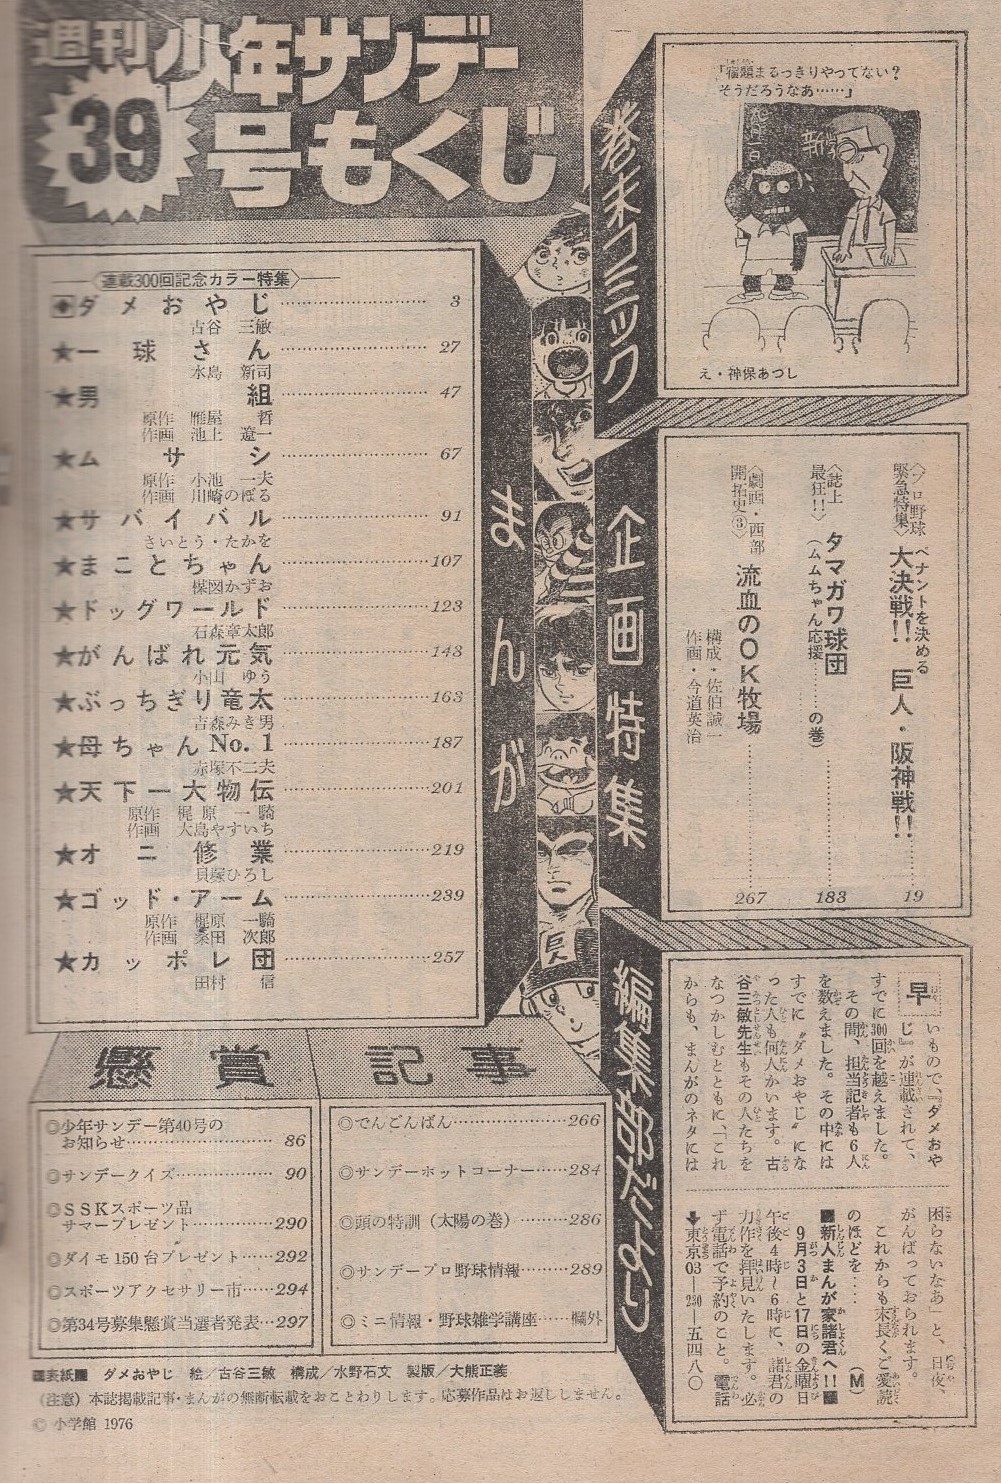 週刊少年サンデー
39号もくじ
巻末コミック
「宿題まるっきりやってない?
そうだろうなあ……」
九月一日
え・神保あつし
まんが
〈連載300回記念カラー特集〉
ダメおやじ……3
古谷三敏
★一球さん……27
水島新司
★男組……47
原作 雁屋 哲
作画 池上 遼一
★ムサシ……67
原作 小池 一夫
作画 川崎のぼる
★サバイバル……91
さいとう・たかを
★まことちゃん……107
楳図かずお
★ドッグワールド……123
石森章太郎
★がんばれ元気……143
小山 ゆう
★ぶっちぎり竜太……163
吉森みき男
★母ちゃんNo.1……187
赤塚不二夫
★天下一大物伝……201
原作 梶原 一騎
作画 大島やすいち
★オニ修業……219
貝塚ひろし
★ゴッド・アーム……239
原作 梶原 一騎
作画 桑田 次郎
★カッポレ団……257
田村 信
巨人
企画特集
〈プロ野球緊急特集〉
ペナントを決める
大決戦!! 巨人・阪神戦!!……19
〈誌上最狂!!〉
タマガワ球団……183
(ムムちゃん応援……の巻)
〈劇画・西部開拓史③〉
流血のOK牧場……267
構成・佐伯誠一
作画・今道英治
懸賞
◎少年サンデー第40号の
お知らせ……86
◎サンデークイズ……90
◎SSKスポーツ品
サマープレゼント……290
◎ダイモ150台プレゼント……292
◎スポーツアクセサリー市……294
◎第34号募集懸賞当選者発表…297
記事
◎でんごんばん……266
◎サンデーホットコーナー……284
◎頭の特訓(太陽の巻)……286
◎サンデープロ野球情報……289
◎ミニ情報・野球雑学講座……欄外
編集部だより
早いもので、『ダメおや
じ』が連載されて、
すでに300回を越えました。
その間、担当記者も6人
を数えました。その中には
すでに〝ダメおやじ〟にな
った人も何人かいます。古
谷三敏先生もその人たちを
なつかしむとともに、「これ
からも、まんがのネタには
困らないなあ」と、日夜、
がんばっておられます。
これからも末長くご愛読
のほどを…。 (M)
■新人まんが家諸君へ!!■
9月3日と17日の金曜日
午後4時~6時に、諸君の
力作を拝見いたします。必
ず電話で予約のこと。電話
↓東京03―230―五四八〇
■表紙■ ダメおやじ 絵/古谷三敏 構成/水野石文 製版/大熊正義
(注意) 本誌掲載記事・まんがの無断転載をおことわりします。応募作品はお返ししません。
© 小学館 1976